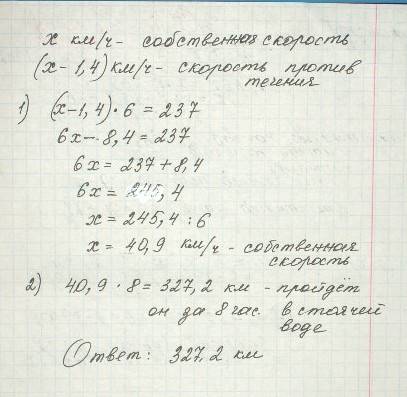 x км/ч - собственная скорость
(x-1,4) км/ч - скорость против
течения
1) (x-1,4)·6=237
6x-8,4=237
6x=237+8,4
6x=245,4
x=245,4:6
x=40,9 км/ч - собственная
скорость
2) 40,9·8=327,2 км - пройдёт
он за 8 час. в стоячей
воде
Ответ: 327,2 км